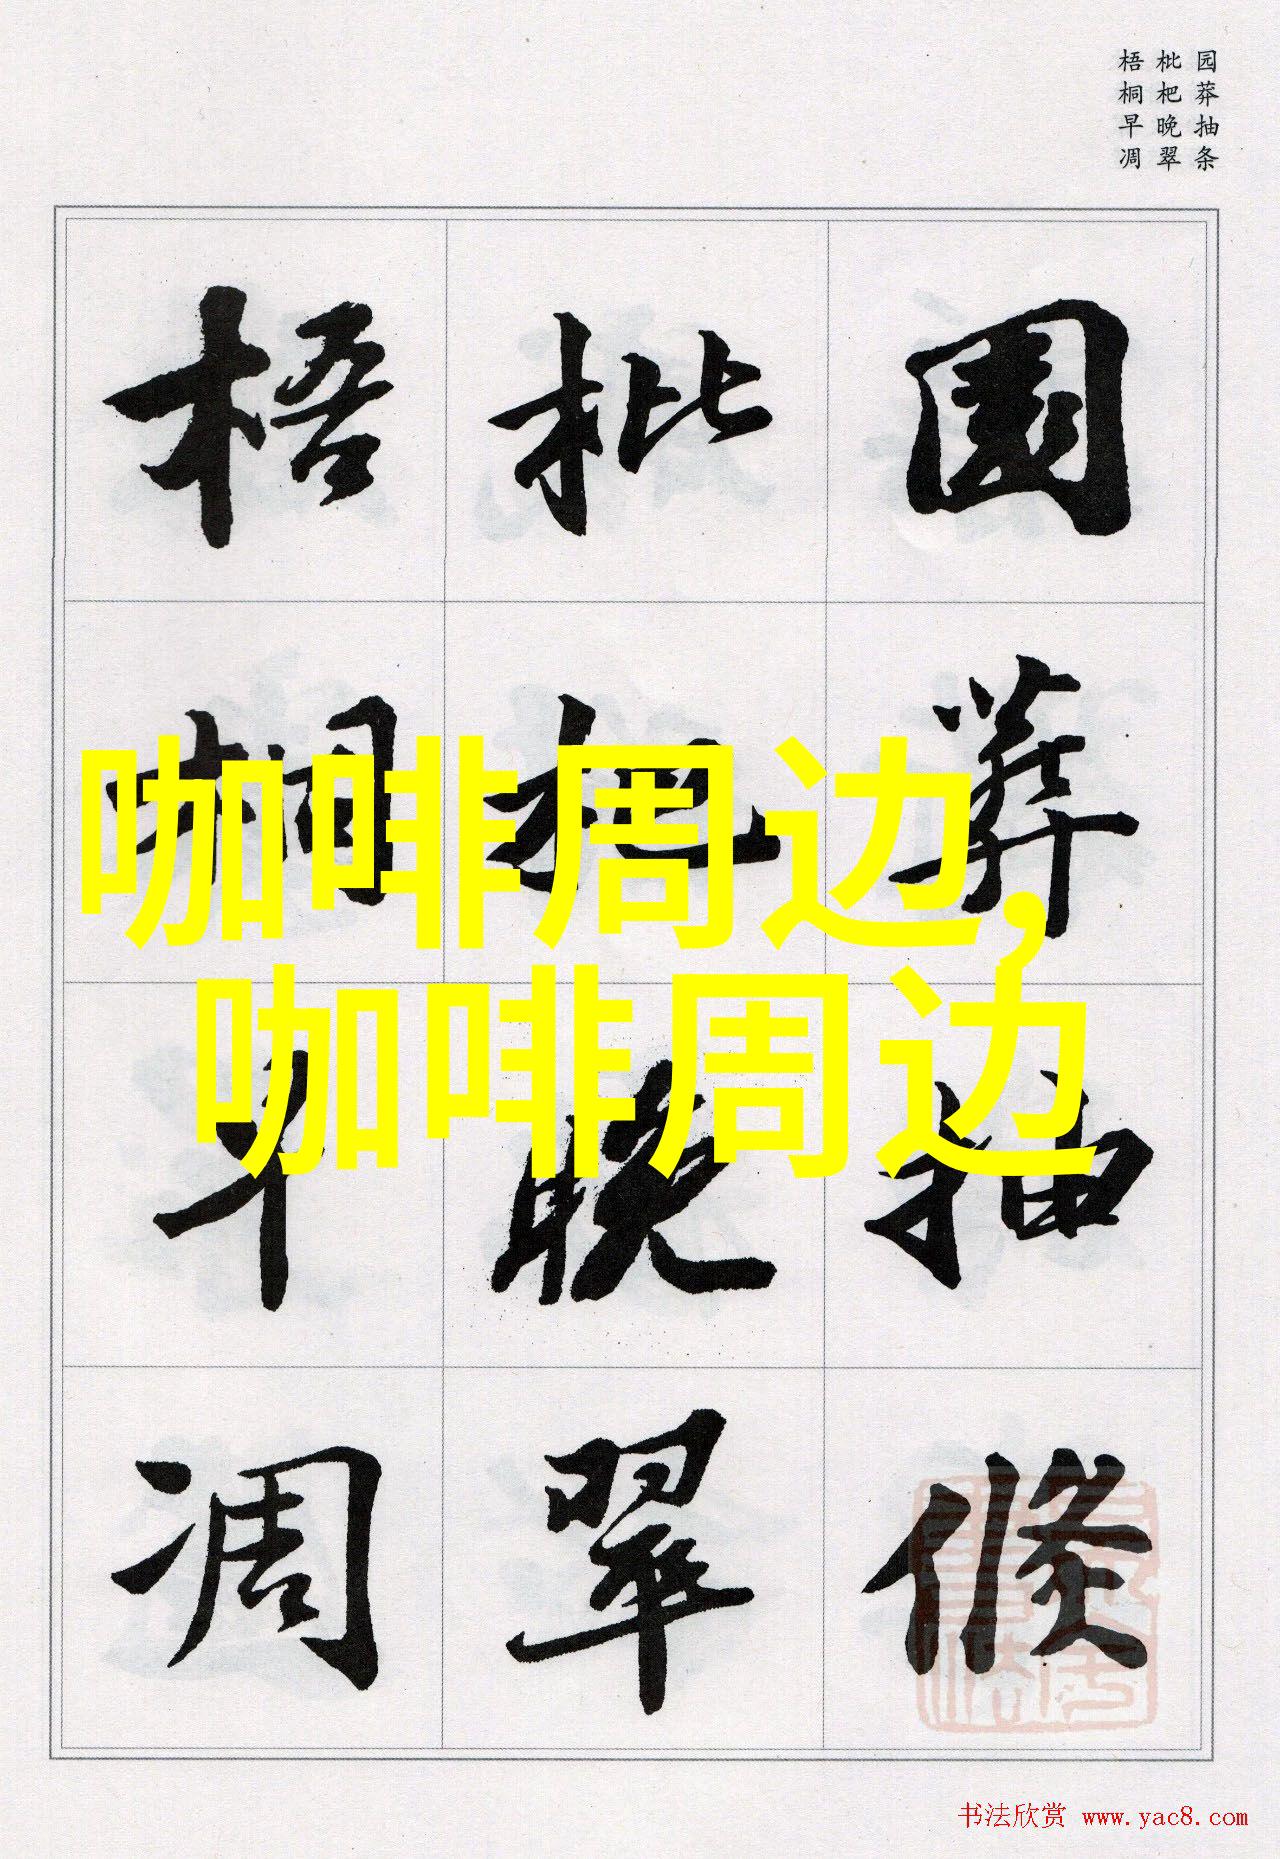 园莽抽条
枇杷晚翠
梧桐早凋
園莽抽條
枇杷晚翠
梧桐早凋
咖啡周边,
咖啡周边
书法欣赏 www.yac8.com